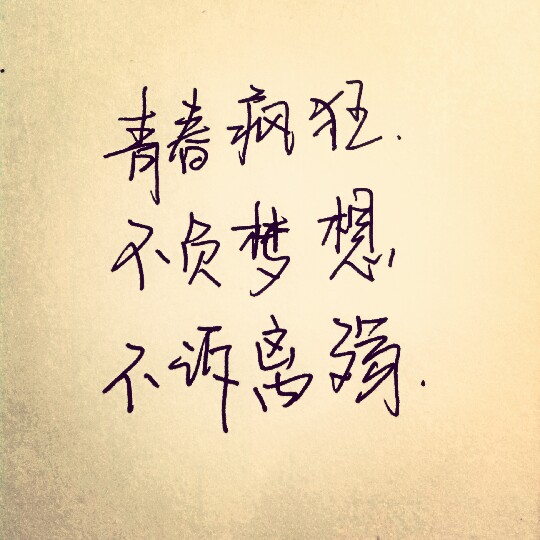 青春疯狂.
不负梦想
不诉离殇.